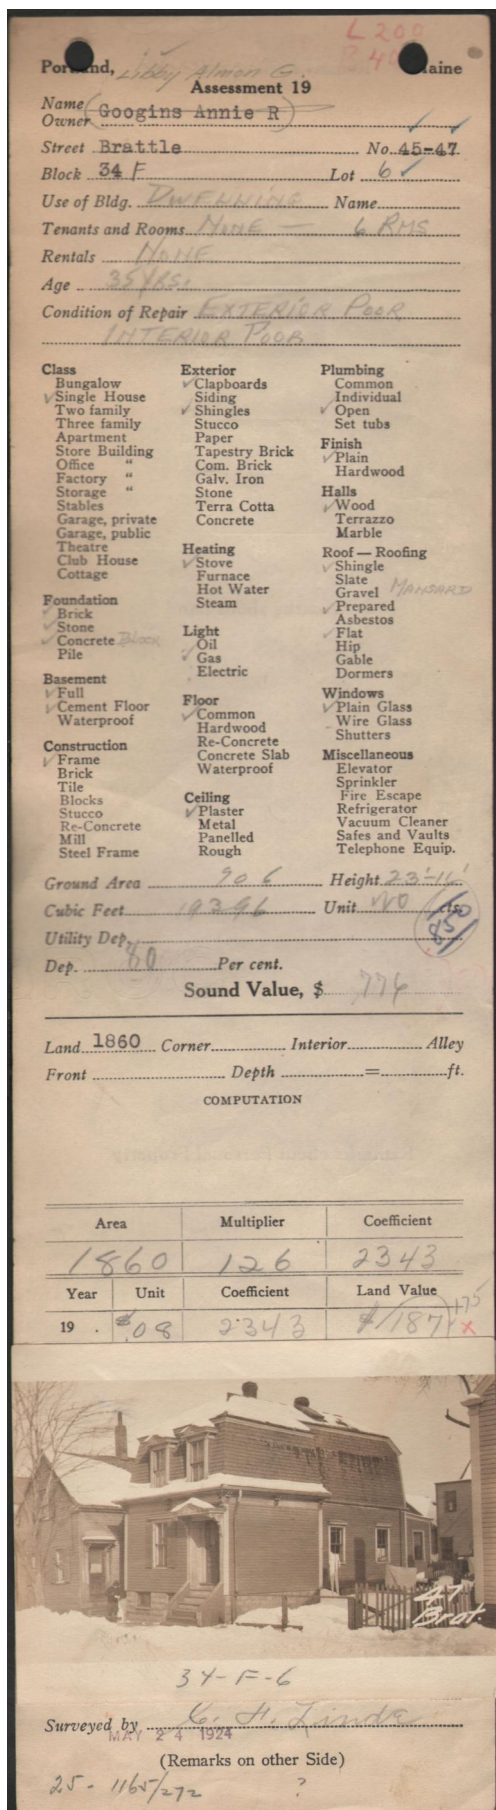 L 200
Portland, Libby Almon G. Maine
Assessment 19
Name
Owner Googins Annie R
Street Brattle No. 45-47
Block 34 F Lot 6
Use of Bldg. DWELLING Name
Tenants and Rooms NONE — 6 RMS
Rentals NONE
Age 35 YRS.
Condition of Repair EXTERIOR POOR
INTERIOR POOR
Class
Bungalow
Single House
Two family
Three family
Apartment
Store Building
Office "
Factory "
Storage "
Stables
Garage, private
Garage, public
Theatre
Club House
Cottage
Foundation
Brick
Stone
Concrete BLOCK
Pile
Basement
Full
Cement Floor
Waterproof
Construction
Frame
Brick
Tile
Blocks
Stucco
Re-Concrete
Mill
Steel Frame
Exterior
Clapboards
Siding
Shingles
Stucco
Paper
Tapestry Brick
Com. Brick
Galv. Iron
Stone
Terra Cotta
Concrete
Heating
Stove
Furnace
Hot Water
Steam
Light
Oil
Gas
Electric
Floor
Common
Hardwood
Re-Concrete
Concrete Slab
Waterproof
Ceiling
Plaster
Metal
Panelled
Rough
Plumbing
Common
Individual
Open
Set tubs
Finish
Plain
Hardwood
Halls
Wood
Terrazzo
Marble
Roof — Roofing
Shingle
Slate
Gravel MANSARD
Prepared
Asbestos
Flat
Hip
Gable
Dormers
Windows
Plain Glass
Wire Glass
Shutters
Miscellaneous
Elevator
Sprinkler
Fire Escape
Refrigerator
Vacuum Cleaner
Safes and Vaults
Telephone Equip.
Ground Area 906 Height 23'-11"
Cubic Feet 19396 Unit NO cts.
Utility Dep.
Dep. 80 Per cent.
Sound Value, $ 776
Land 1860 Corner Interior Alley
Front Depth = ft.
COMPUTATION
Area Multiplier Coefficient
1860 126 2343
Year Unit Coefficient Land Value
19 . $.08 2343 $187 +75 x
47
Brat.
34-F-6
Surveyed by C. H. Linde
MAY 24 1924
(Remarks on other Side)
25 - 1165/272 ?